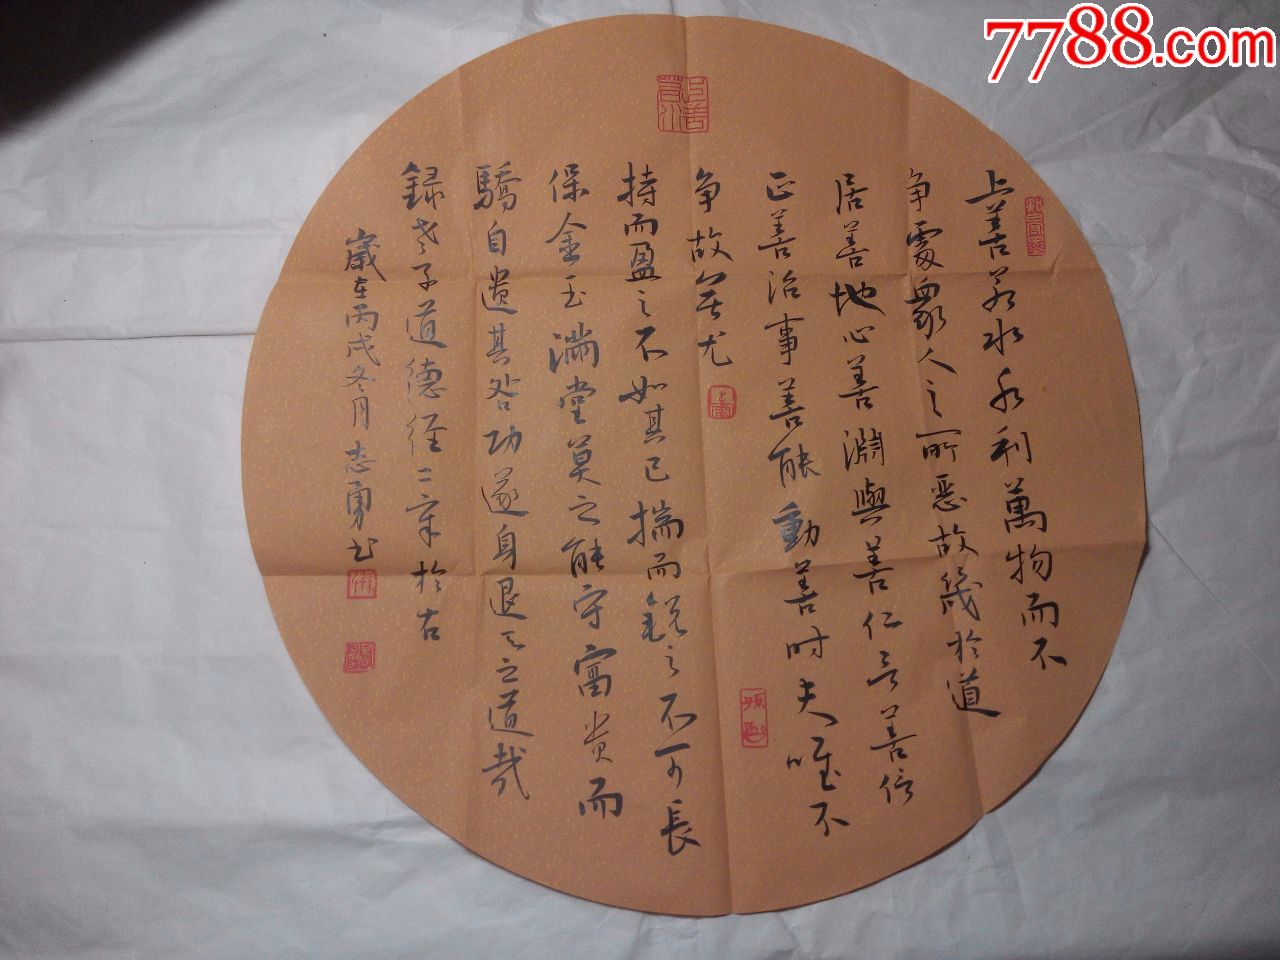 7788.com
上善若水水利萬物而不
争處衆人之所惡故幾於道
居善地心善淵與善仁言善信
正善治事善能動善时夫唯不
争故無尤
持而盈之不如其已揣而銳之不可長
保金玉滿堂莫之能守富贵而
驕自遗其咎功遂身退天之道哉
録老子道德经二章於右
歲在丙戌冬月志勇书